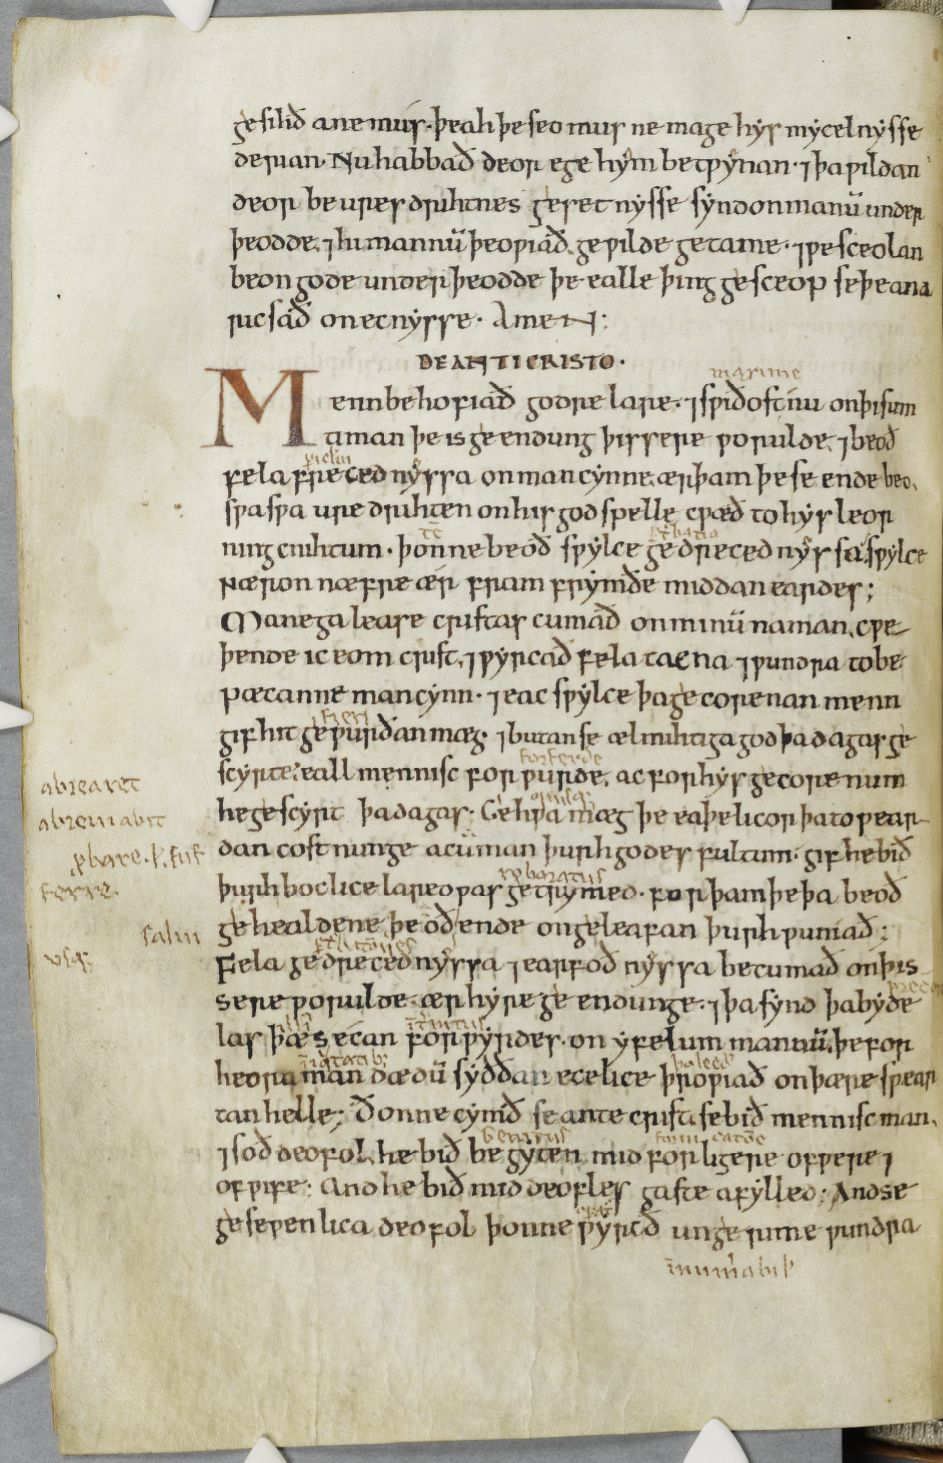 gesihð ane mus. þeah þe seo mus ne mage hys mycelnysse
derian. Nu habbað deor ege hym betwynan. ⁊ þa wildan
deor be ures drihtnes gesetnysse syndon mannū under
þeodde. ⁊ hi mannū þeowiað gewilde getame. ⁊ we sceolan
beon gode underþeodde þe ealle þing gesceop se þe ana
ricsað on ecnysse. AmeN:
DE ANTICRISTO.
maxime
Menn behofiað godre lare. ⁊ swiðost nu on þisum
timan þe is geendung þissere worulde. ⁊ beoð
fela frecednyssa on mancynne ær þam þe se ende beo.
swa swa ure drihten on his godspelle cwæð to hys leor
ning cnihtum. þonne beoð swylce gedrecednyssa. swylce
næron næfre ær fram frymðe middaneardes;
Manega lease cristas cumað on minū naman, cwe
þende ic eom crist, ⁊ wyrcað fela tacna ⁊ wundra to be
pæcanne mancynn. ⁊ eac swylce þa gecorenan menn
fieri
gif hit gewurðan mæg. ⁊ butan se ælmihtiga god þa dagas ge
scyrte. eall mennisc forwurde, ac for hys gecorenum
he gescyrt þa dagas. Gehwa mæg þe eaþelicor þa towear
dan costnunge acuman þurh godes fultum. gif he bið
roboratus
þurh boclice lareowas getrymed. for þam þe þa beoð
gehealdene þe oð ende on geleafan þurhwuniað:
salui
usq;
Fela gedrecednyssa ⁊ earfoðnyssa becumað on þis
sere worulde ær hyre geendunge. ⁊ þa synd þa byde
las þæs ecan forwyrdes. on yfelum mannū. þe for
heora man dædū syððan ecelice þrowiað on þære swear
tan helle; Ðonne cymð se antecrist. se bið mennisc man,
⁊ soð deofol. he bið begyten mid forligere of were ⁊
of wife: And he bið mid deofles gaste afylled: And se
gesewenlica deofol þonne wyrcð ungerime wundra